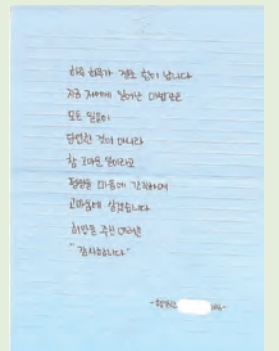 하루 하루가 정말 힘이 납니다
지금 저에게 일어난
모든 일들이
당연한 것이 아니라
참 고마운 일이라고
마음에 간직하며
고마움에 살겠습니다
희망을 주신
"감사합니다"